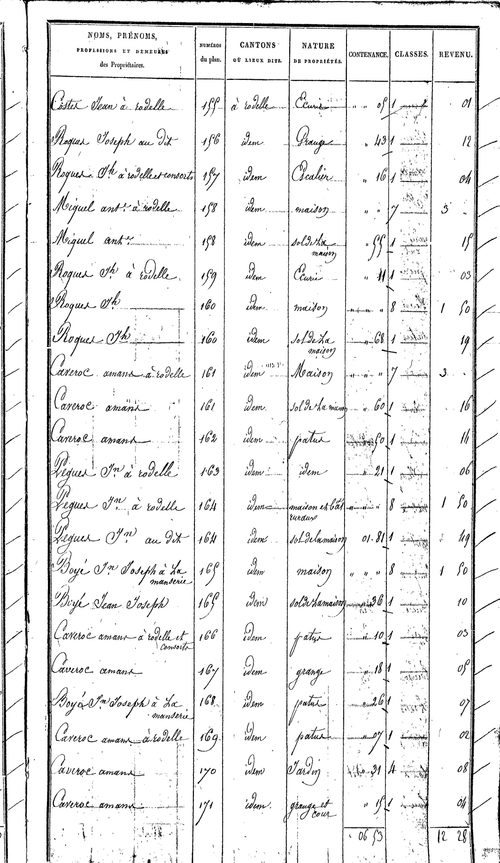 NOMS, PRÉNOMS, PROFESSIONS ET DEMEURES des Propriétaires. NUMÉROS du plan. CANTONS OÙ LIEUX DITS. NATURE DE PROPRIÉTÉS. CONTENANCE. CLASSES. REVENU.
Costes Jean à rodelle 155 à rodelle Ecurie " " 05 1 01
Roques Joseph au dit 156 idem Grange " 43 1 12
Roques Jh à rodelle et consorts 157 idem Escalier " 16 1 04
Miquel ant. à rodelle 158 idem maison " " 7 3 "
Miquel ant. 158 idem sol de La maison " 55 1 15
Roques Jh à rodelle 159 idem Ecurie " 11 1 03
Roques Jh 160 idem maison " " " 8 1 50
Roques Jh 160 idem sol de La maison " 68 1 19
Caveroc amans à rodelle 161 idem Maison " " " 7 3 "
Caveroc amans 161 idem sol de La maison " 60 1 16
Caveroc amans 162 idem patus " 50 1 14
Pégues Jn à rodelle 163 idem idem " 21 1 06
Pégues Jn à rodelle 164 idem maison et bât ruraux " " " 8 1 50
Pégues Jn au dit 164 idem sol de la maison 01.81 1 49
Boyé Jn Joseph à La manserie 165 idem maison " " " 8 1 50
Boyé Jean Joseph 165 idem sol de La maison " 36 1 10
Caveroc amans à rodelle et consorts 166 idem patus " 10 1 03
Caveroc amans 167 idem grange " 18 1 05
Boyé Jn Joseph à La manserie 168 idem patus " 26 1 07
Caveroc amans à rodelle 169 idem patus " 07 1 02
Caveroc amans 170 idem Jardin " 31 4 08
Caveroc amans 171 idem grange et cour " 15 1 04
06 53 12 28